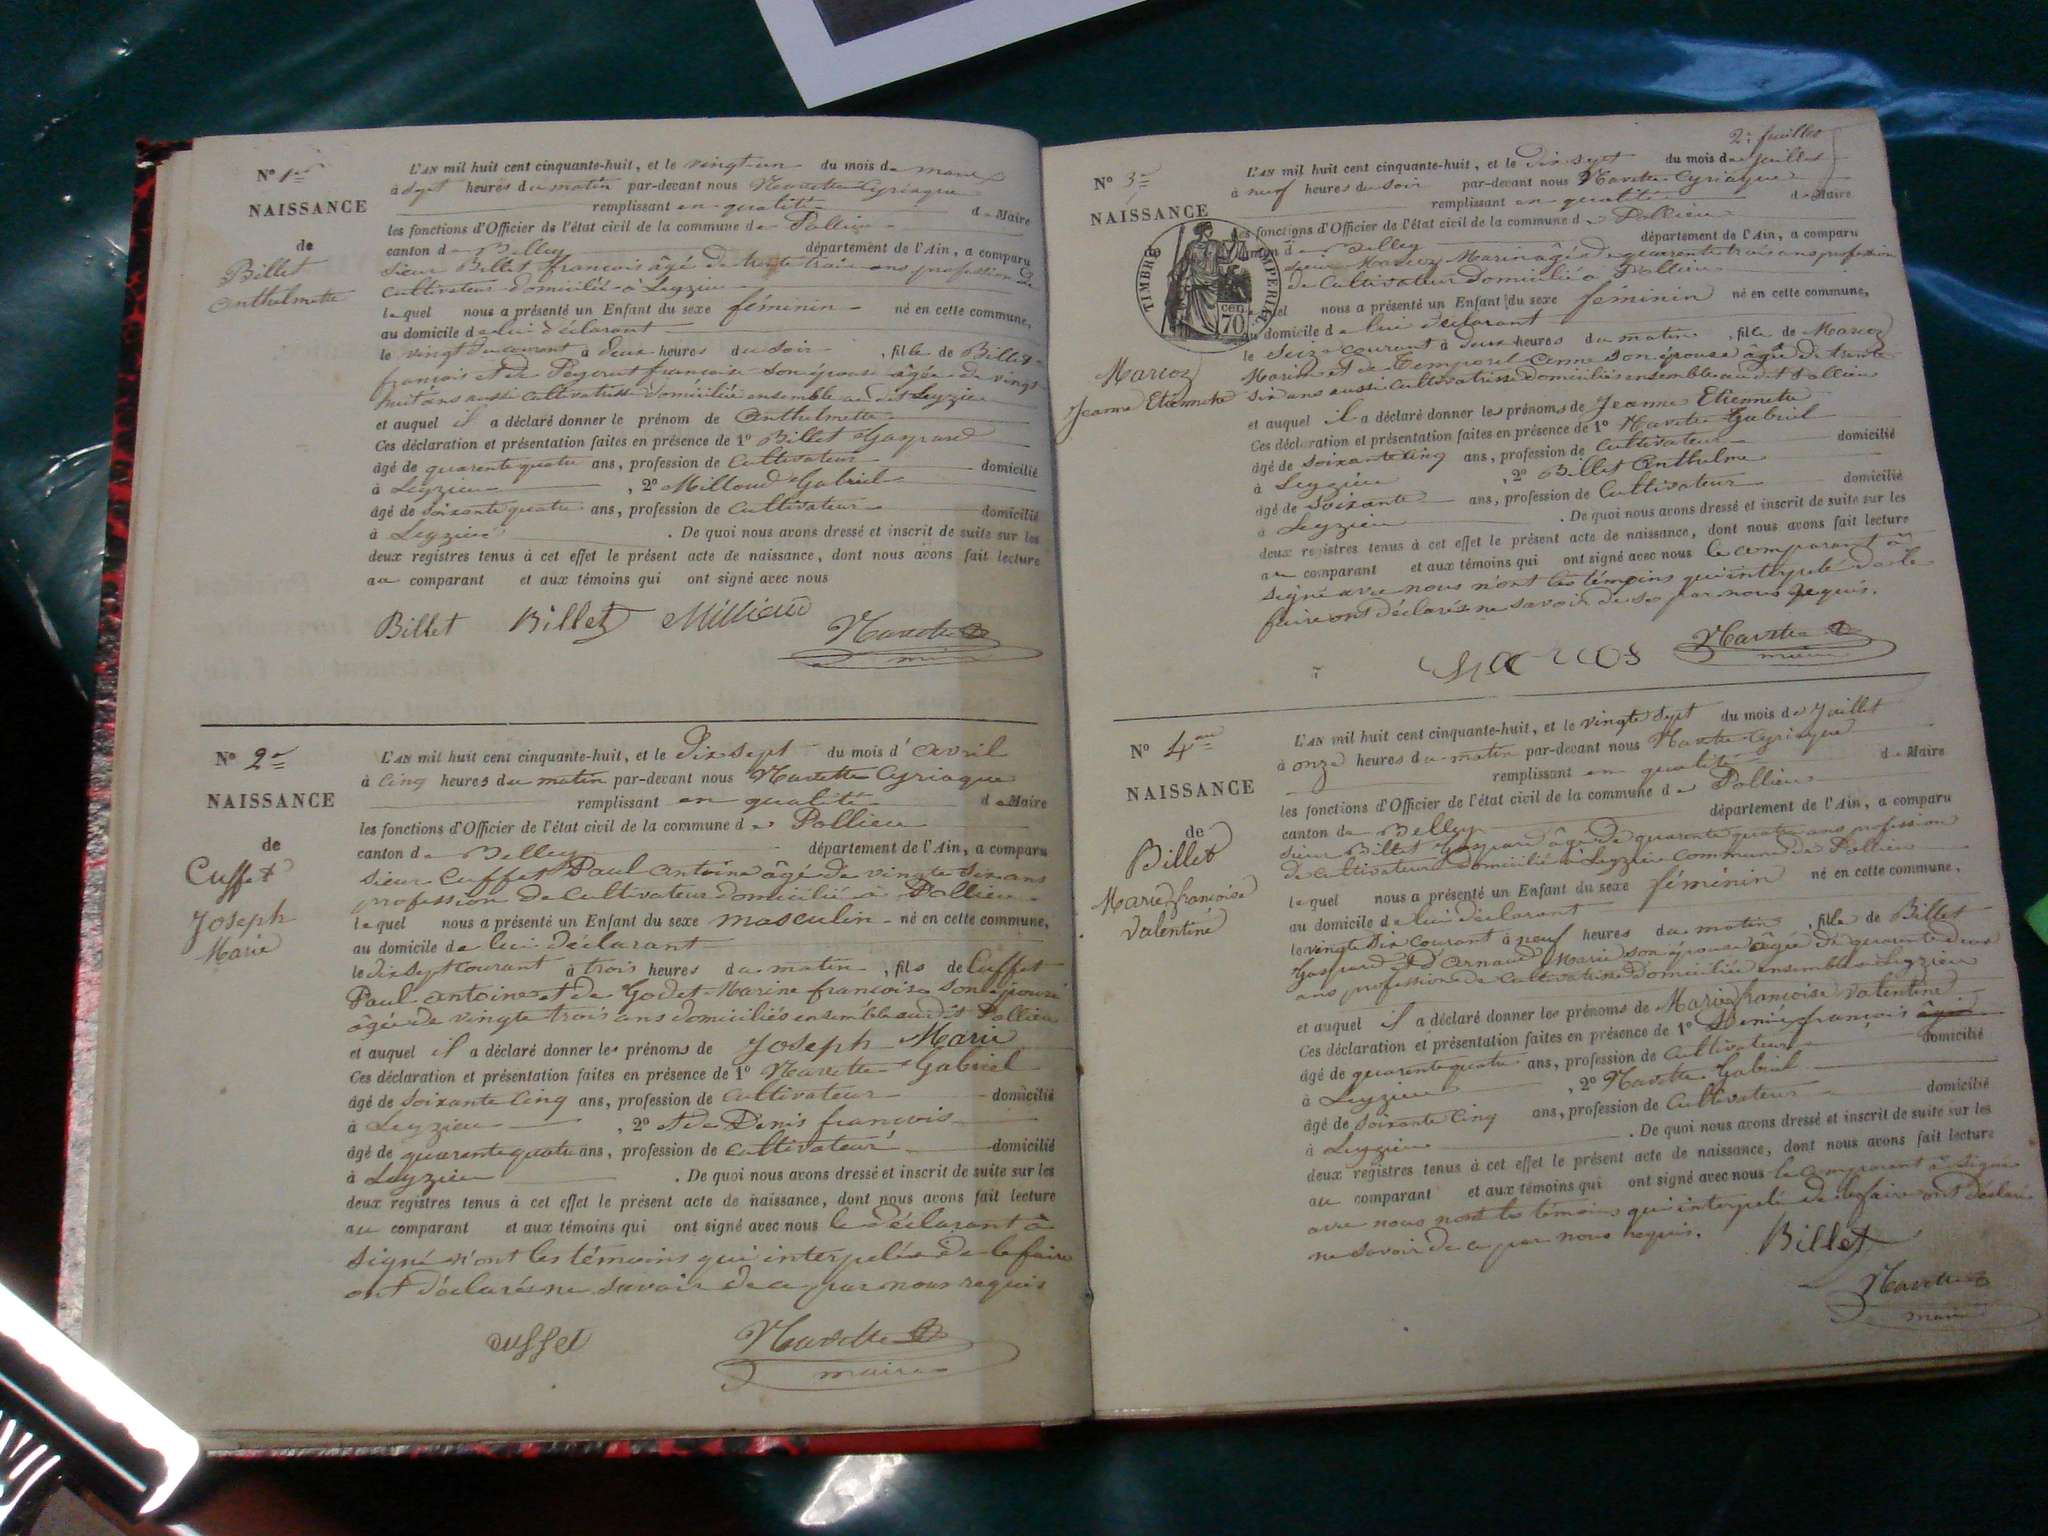 N° 1er
NAISSANCE
de
Billet
Anthelmette
L'AN mil huit cent cinquante-huit, et le vingt-un du mois de mars
à sept heures du matin par-devant nous Navette Cyriaque
remplissant en qualité de Maire
les fonctions d'Officier de l'état civil de la commune de Pollieu
canton de Belley département de l'Ain, a comparu
sieur Billet françois âgé de trente trois ans profession de
cultivateur domicilié à Leyzieu
lequel nous a présenté un Enfant du sexe féminin né en cette commune,
au domicile de lui déclarant
le vingt du courant à deux heures du soir, fille de Billet
françois et de françoise son épouse âgée de vingt
huit ans aussi cultivatrice domiciliés ensemble au dit Leyzieu
et auquel il a déclaré donner le prénom de Anthelmette
Ces déclaration et présentation faites en présence de 1° Billet Gaspard
âgé de quarente quatre ans, profession de Cultivateur domicilié
à Leyzieu, 2° Milloud Gabriel
âgé de soixante quatre ans, profession de Cultivateur domicilié
à Leyzieu. De quoi nous avons dressé et inscrit de suite sur les
deux registres tenus à cet effet le présent acte de naissance, dont nous avons fait lecture
au comparant et aux témoins qui ont signé avec nous
Billet Billet Milloud Navette
maire
N° 2e
NAISSANCE
de
Cuffet
Joseph
Marie
L'AN mil huit cent cinquante-huit, et le Dix sept du mois d'avril
à Cinq heures du matin par-devant nous Navette Cyriaque
remplissant en qualité de Maire
les fonctions d'Officier de l'état civil de la commune de Pollieu
canton de Belley département de l'Ain, a comparu
sieur Cuffet Paul Antoine âgé de vingte six ans
profession de Cultivateur domicilié à Pollieu
lequel nous a présenté un Enfant du sexe masculin né en cette commune,
au domicile de lui déclarant
le Dix sept courant à trois heures du matin, fils de Cuffet
Paul Antoine et de Godet Marine françoise son épouse
âgée de vingte trois ans domiciliés ensemble au dit Pollieu
et auquel il a déclaré donner les prénoms de Joseph Marie
Ces déclaration et présentation faites en présence de 1° Navette Gabriel
âgé de soixante Cinq ans, profession de cultivateur domicilié
à Leyzieu, 2° et de Denis françois
âgé de quarente quatre ans, profession de Cultivateur domicilié
à Leyzieu. De quoi nous avons dressé et inscrit de suite sur les
deux registres tenus à cet effet le présent acte de naissance, dont nous avons fait lecture
au comparant et aux témoins qui ont signé avec nous le déclarant à
signé n'ont les témoins qui interpelés de le faire
ont déclarés ne savoir de ce par nous requis
cuffet Navette
maire
2e feuillet
N° 3e
NAISSANCE
TIMBRE IMPERIAL
cen. 70
Marcoz
Jeanne Etiennette
L'AN mil huit cent cinquante-huit, et le Dix sept du mois de Juillet
à neuf heures du soir par-devant nous Navette Cyriaque
remplissant en qualité de Maire
les fonctions d'Officier de l'état civil de la commune de Pollieu
canton de Belley département de l'Ain, a comparu
sieur Marcoz Marin âgé de quarente trois ans profession
de Cultivateur domicilié à Pollieu
lequel nous a présenté un Enfant du sexe féminin né en cette commune,
au domicile de lui déclarant
le Seize courant à deux heures du matin, fille de Marcoz
Marin et de Temporel son épouse âgée de trente
six ans aussi Cultivatrice domiciliés ensemble au dit Pollieu
et auquel il a déclaré donner les prénoms de Jeanne Etiennette
Ces déclaration et présentation faites en présence de 1° Navette Gabriel
âgé de soixante Cinq ans, profession de Cultivateur domicilié
à Leyzieu, 2° Billet Anthelme
âgé de soixante ans, profession de Cultivateur domicilié
à Leyzieu. De quoi nous avons dressé et inscrit de suite sur les
deux registres tenus à cet effet le présent acte de naissance, dont nous avons fait lecture
au comparant et aux témoins qui ont signé avec nous le comparant à
signé avec nous n'ont les témoins qui interpelé de le
faire ont déclarés ne savoir de ce par nous requis.
Navette
maire
N° 4me
NAISSANCE
de
Billet
Marie françoise
Valentine
L'AN mil huit cent cinquante-huit, et le vingte sept du mois de Juillet
à onze heures du matin par-devant nous Navette Cyriaque
remplissant en qualité de Maire
les fonctions d'Officier de l'état civil de la commune de Pollieu
canton de Belley département de l'Ain, a comparu
sieur Billet Gaspard âgé de quarente quatre ans profession
de Cultivateur domicilié à Leyzieu commune de Pollieu
lequel nous a présenté un Enfant du sexe féminin né en cette commune,
au domicile de lui déclarant
le vingte six courant à neuf heures du matin, fille de Billet
Gaspard et d'Arnaud Marie son épouse âgée de quarente deux
ans profession de Cultivatrice domiciliée ensemble à Leyzieu
et auquel il a déclaré donner les prénoms de Marie françoise Valentine
Ces déclaration et présentation faites en présence de 1° Denis françois âgé
âgé de quarente quatre ans, profession de Cultivateur domicilié
à Leyzieu, 2° Navette Gabriel
âgé de soixante cinq ans, profession de Cultivateur domicilié
à Leyzieu. De quoi nous avons dressé et inscrit de suite sur les
deux registres tenus à cet effet le présent acte de naissance, dont nous avons fait lecture
au comparant et aux témoins qui ont signé avec nous le comparant à signé
avec nous nont les témoins qui interpelé de le faire ont déclaré
ne savoir de ce par nous requis. Billet
Navette
maire